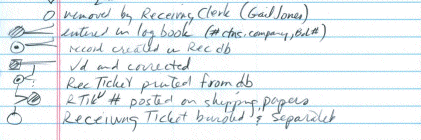 removed by Receiving Clerk (Gail Jones)
entered in log book (# ctns, company, Bol#)
record created in Rec db
√d and corrected
Rec Ticket printed from db
RTik # posted on shipping papers
Receiving Ticket bundled & separated